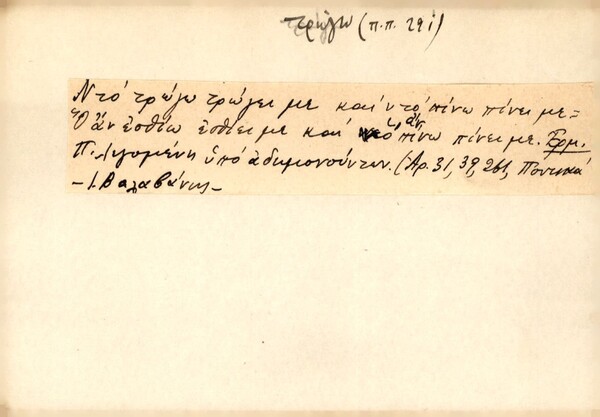 τρώγω (π.π. 291)
Ντό τρώγω τρώγει με και ντό πίνω πίνει με=
Ὅ ἄν ἐσθίω ἐσθίει με καί ὅ,ἄν πίνω πίνει με. Ἑρμ.
Π. Λεγομένη ὑπό ἀδημονούντων. (Ἀρ. 31, 39, 261, Ποντικά
– Ι. Βαλαβάνης –